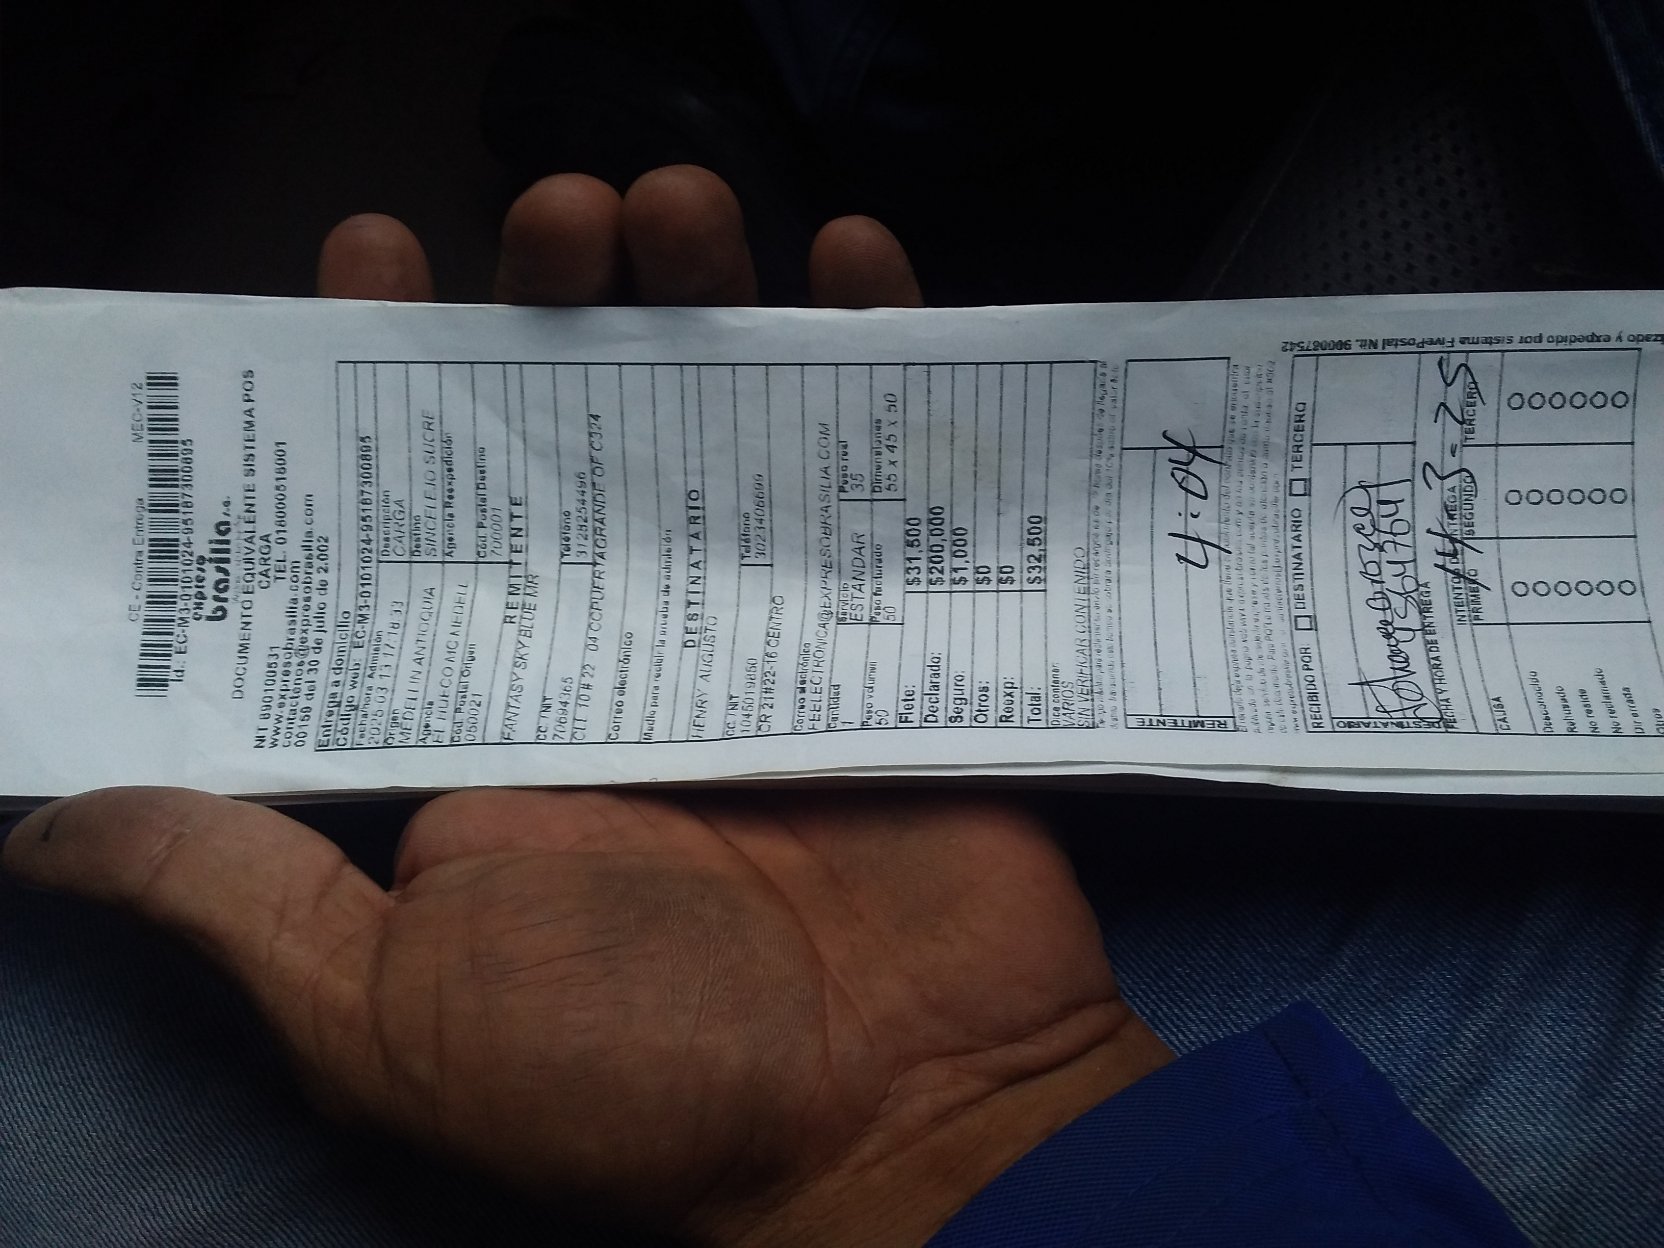 CE - Contra Entrega MEC-V12
Id.: EC-M3-0101024-95187300895
expreso
brasilia s.a.
DOCUMENTO EQUIVALENTE SISTEMA POS
CARGA
NIT 890100531 TEL. 018000518001
www.expresobrasilia.com
contactenos@expresobrasilia.com
00150 del 30 de julio de 2.002
Entrega a domicilio
Código web: EC-M3-0101024-95187300895
Fecha/hora Admisión Descripción
2025 03 13 17:18:33 CARGA
Origen Destino
MEDELLIN ANTIOQUIA SINCELEJO SUCRE
Agencia Agencia Reexpedición
EL HUECO MC MEDELL
Cód. Postal Origen Cód. Postal Destino
050021 700001
REMITENTE
FANTASY SKY BLUE MR
CC / NIT Teléfono
70694365 3128254496
CLL 10 # 22 04 CCPUERTAGRANDE OF C324
Correo electrónico
Medio para recibir la prueba de admisión
DESTINATARIO
HENRY AUGUSTO
CC / NIT Teléfono
1045019850 3023406699
CR 21#22-16 CENTRO
Correo electrónico
FEELECTRONICA@EXPRESOBRASILIA.COM
Cantidad Servicio Peso real
1 ESTANDAR 35
Peso volumen Peso facturado Dimensiones
50 50 55 x 45 x 50
Flete: $31,500
Declarado: $200,000
Seguro: $1,000
Otros: $0
Reexp: $0
Total: $32,500
Dice contener:
VARIOS
SIN VERIFICAR CONTENIDO
REMITENTE
4:04
RECIBIDO POR DESTINATARIO TERCERO
FECHA Y HORA DE ENTREGA
14-3-25
INTENTOS DE ENTREGA
PRIMERO SEGUNDO TERCERO
CAUSA
Desconocido
Rehusado
No reside
No reclamado
Dir errada
Otros
expedido por sistema FivePostal Nit. 900087542